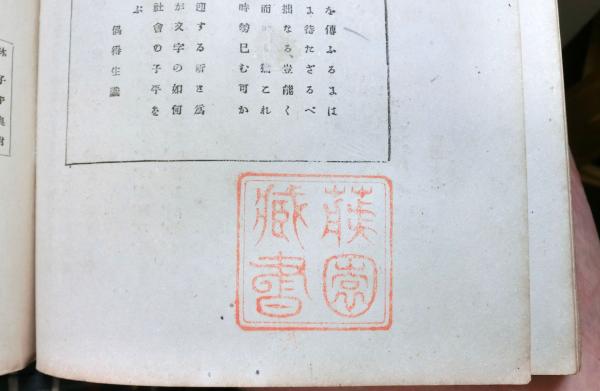 を傳ふるには
に待たざるべ
拙なる豈能く
而 これ
時勢已む可か
迎する所と爲
が文字の如何
社會の子平を
ぶ
偶得生識
園
藏書
林子平